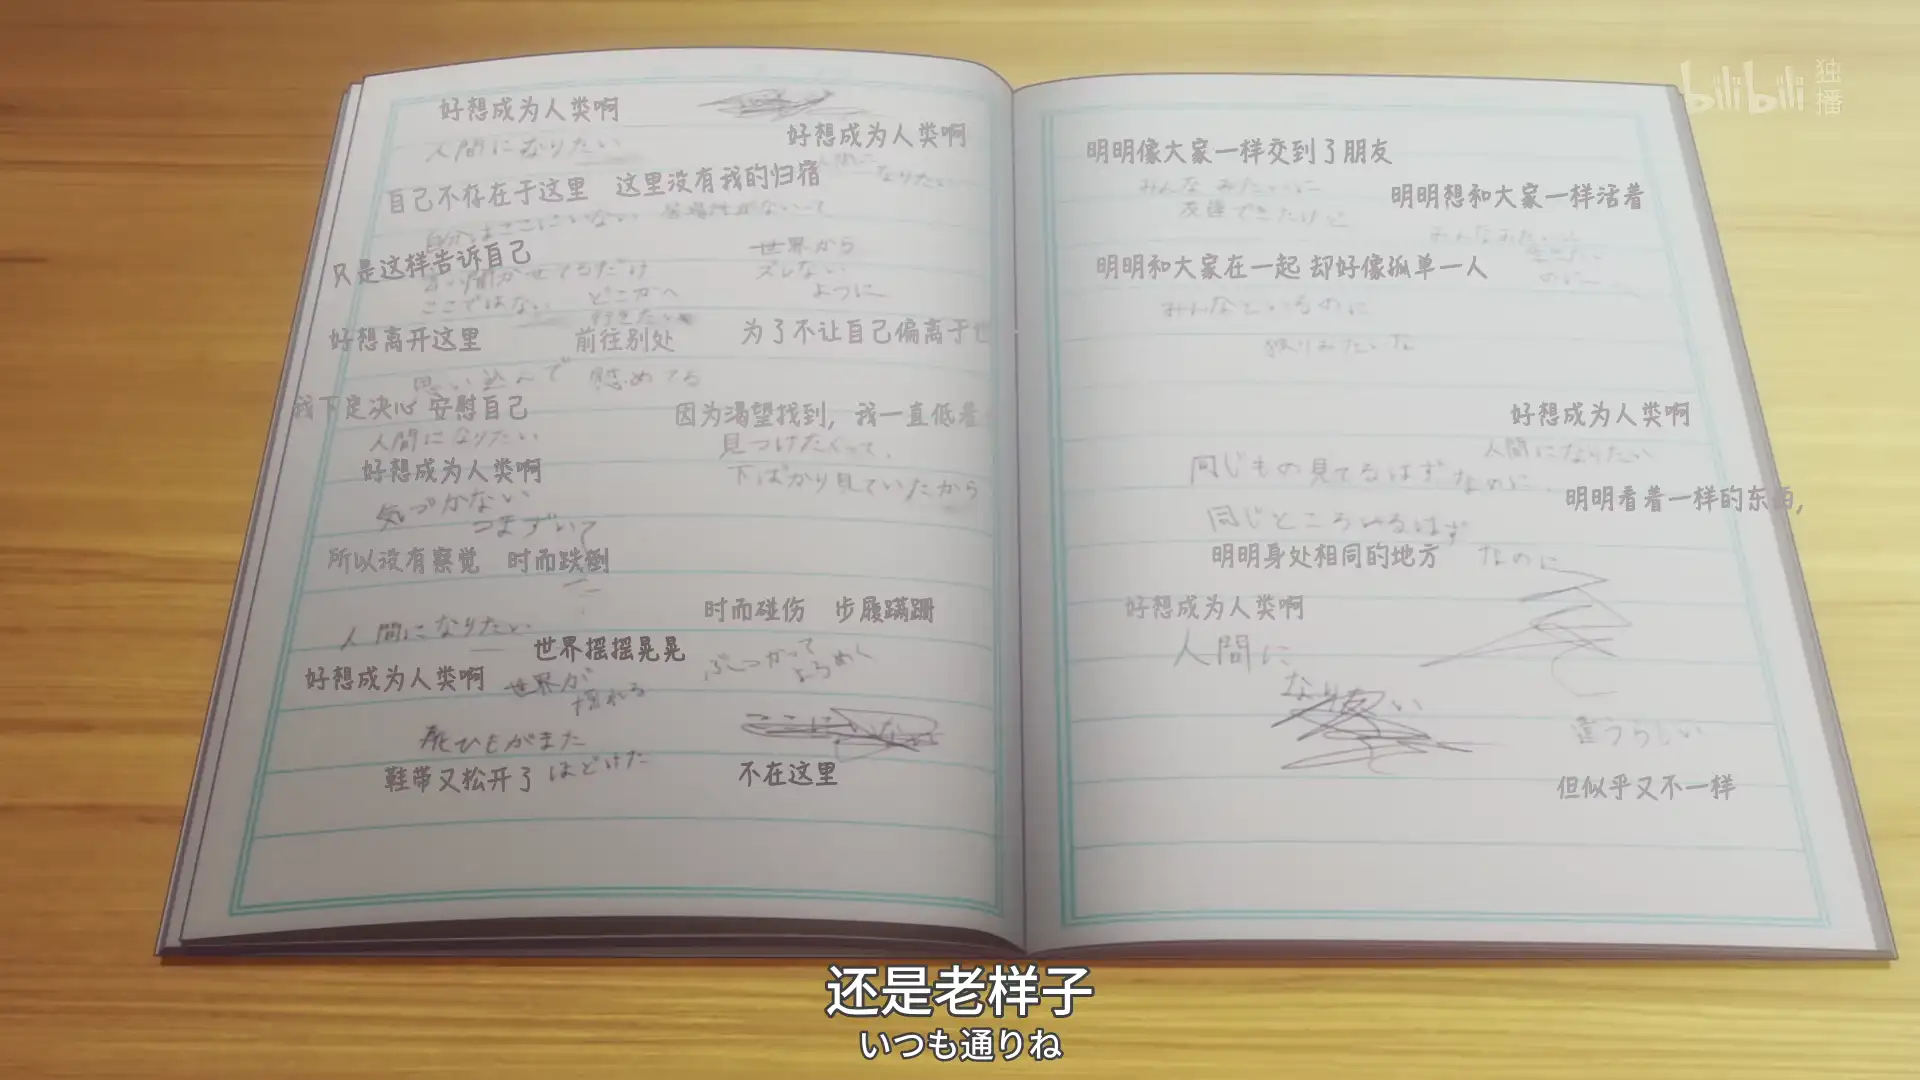 bilibili 独播
好想成为人类啊
人間になりたい
好想成为人类啊
人間に
なりたい
自己不存在于这里 这里没有我的归宿
自分はここにいない 居場所がないって
只是这样告诉自己
言い聞かせてるだけ
世界から
ズレない
ように
ここではない
どこかへ
行きたい
好想离开这里
前往别处
为了不让自己偏离于
思い込んで 慰めてる
我下定决心 安慰自己
因为渴望找到，我一直低着
人間になりたい
見つけたくって、
好想成为人类啊
下ばかり見ていたから
気づかない
つまずいて
所以没有察觉 时而跌倒
时而碰伤 步履蹒跚
人間になりたい
世界摇摇晃晃
ぶつかって
よろめく
好想成为人类啊
世界が
揺れる
靴ひもがまた
ほどけた
ここにいない
鞋带又松开了
不在这里
明明像大家一样交到了朋友
みんなみたいに
友達できたけど
明明想和大家一样活着
みんなみたいに
生きたい
のに
明明和大家在一起 却好像孤单一人
みんなといるのに
独りみたいな
好想成为人类啊
人間になりたい
同じもの見てるはずなのに、
明明看着一样的东西，
同じところいるはず
なのに
明明身处相同的地方
好想成为人类啊
人間に
なりたい
違うらしい
但似乎又不一样
还是老样子
いつも通りね